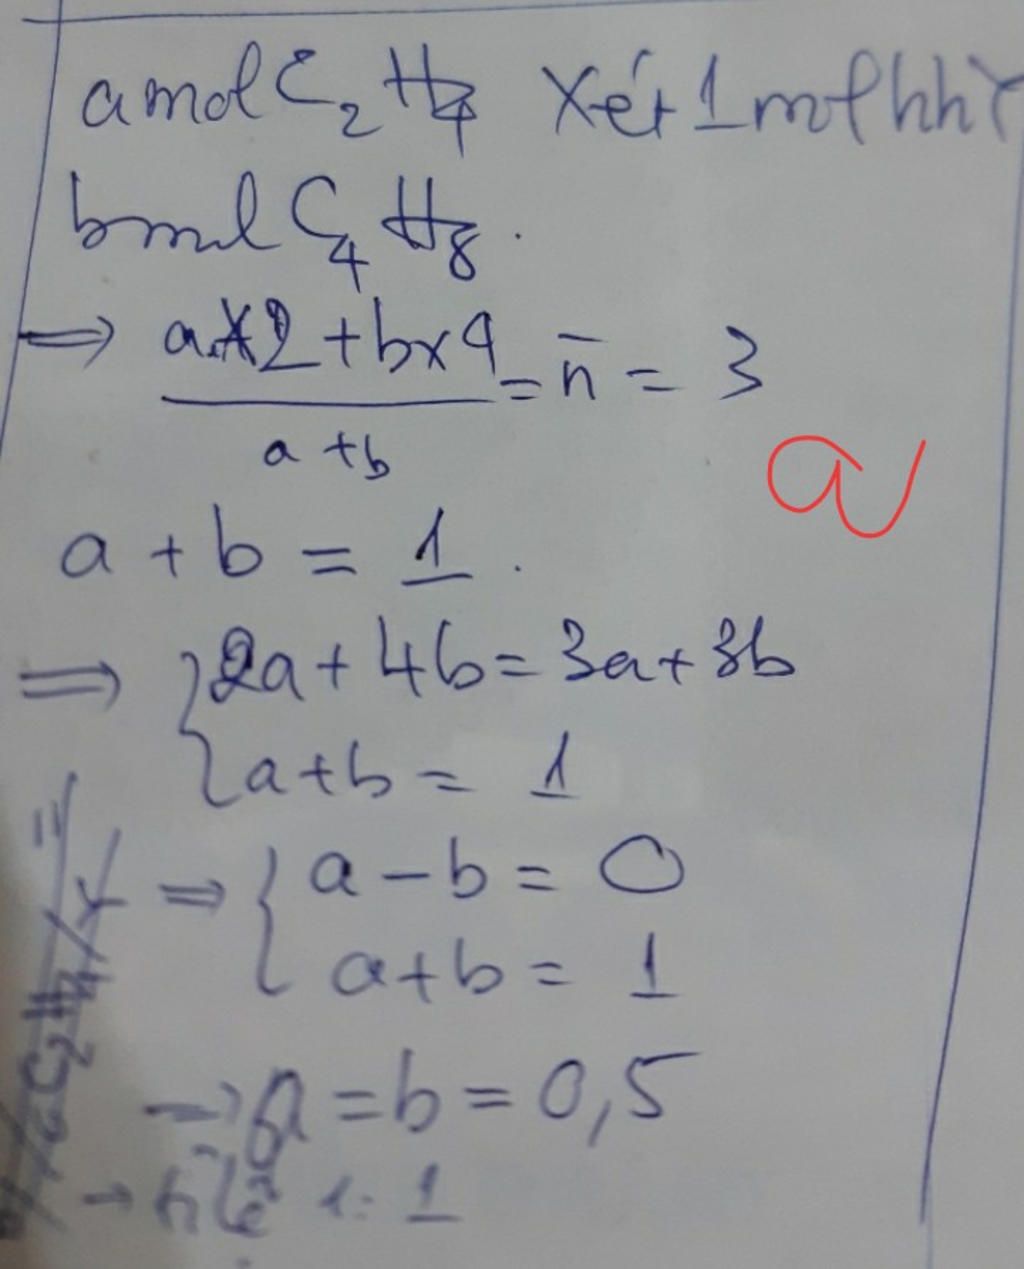 a mol C₂H₄ Xét 1 mol hh Y
b mol C₄H₈.
⇒ (a×2 + b×4)/(a + b) = n̄ = 3
a
a + b = 1.
⇒ { 2a + 4b = 3a + 3b
{ a + b = 1
⇒ { a - b = 0
{ a + b = 1
→ a = b = 0,5
→ tỉ lệ 1:1